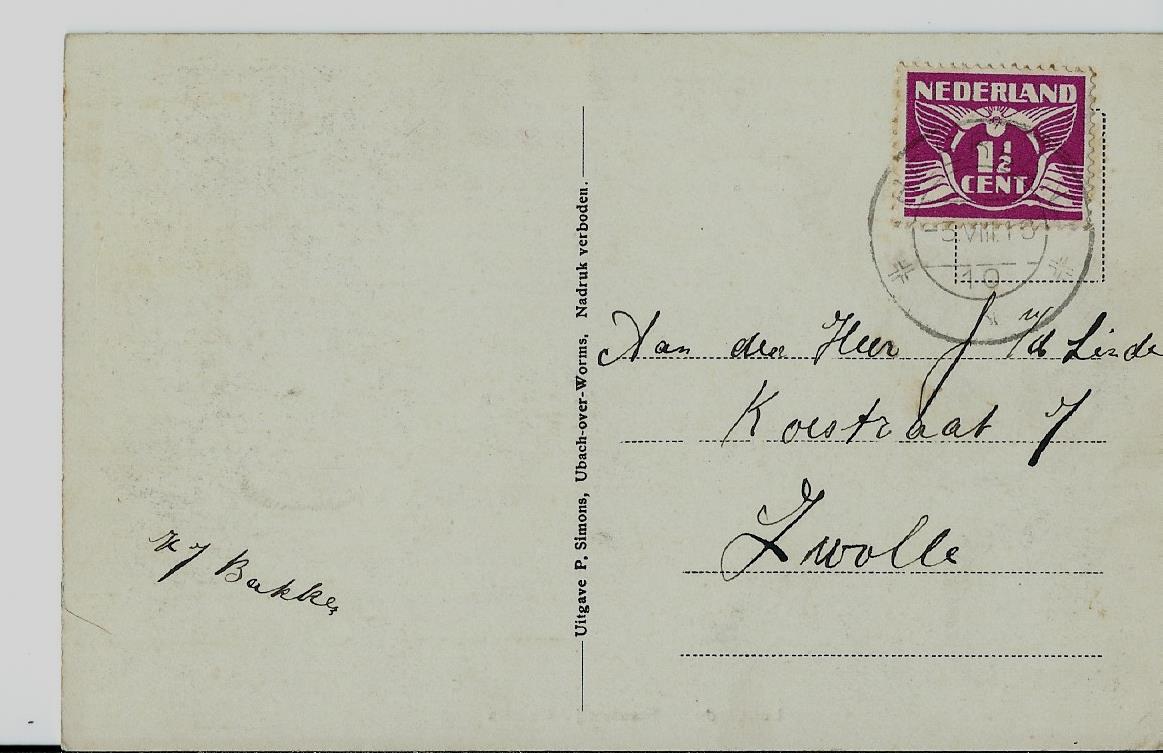 NEDERLAND
1½
CENT
VIII
10
Aan den Heer J v/d Linde
Koestraat 7
Zwolle
Uitgave P. Simons, Ubach-over-Worms, Nadruk verboden.
H J Bakker